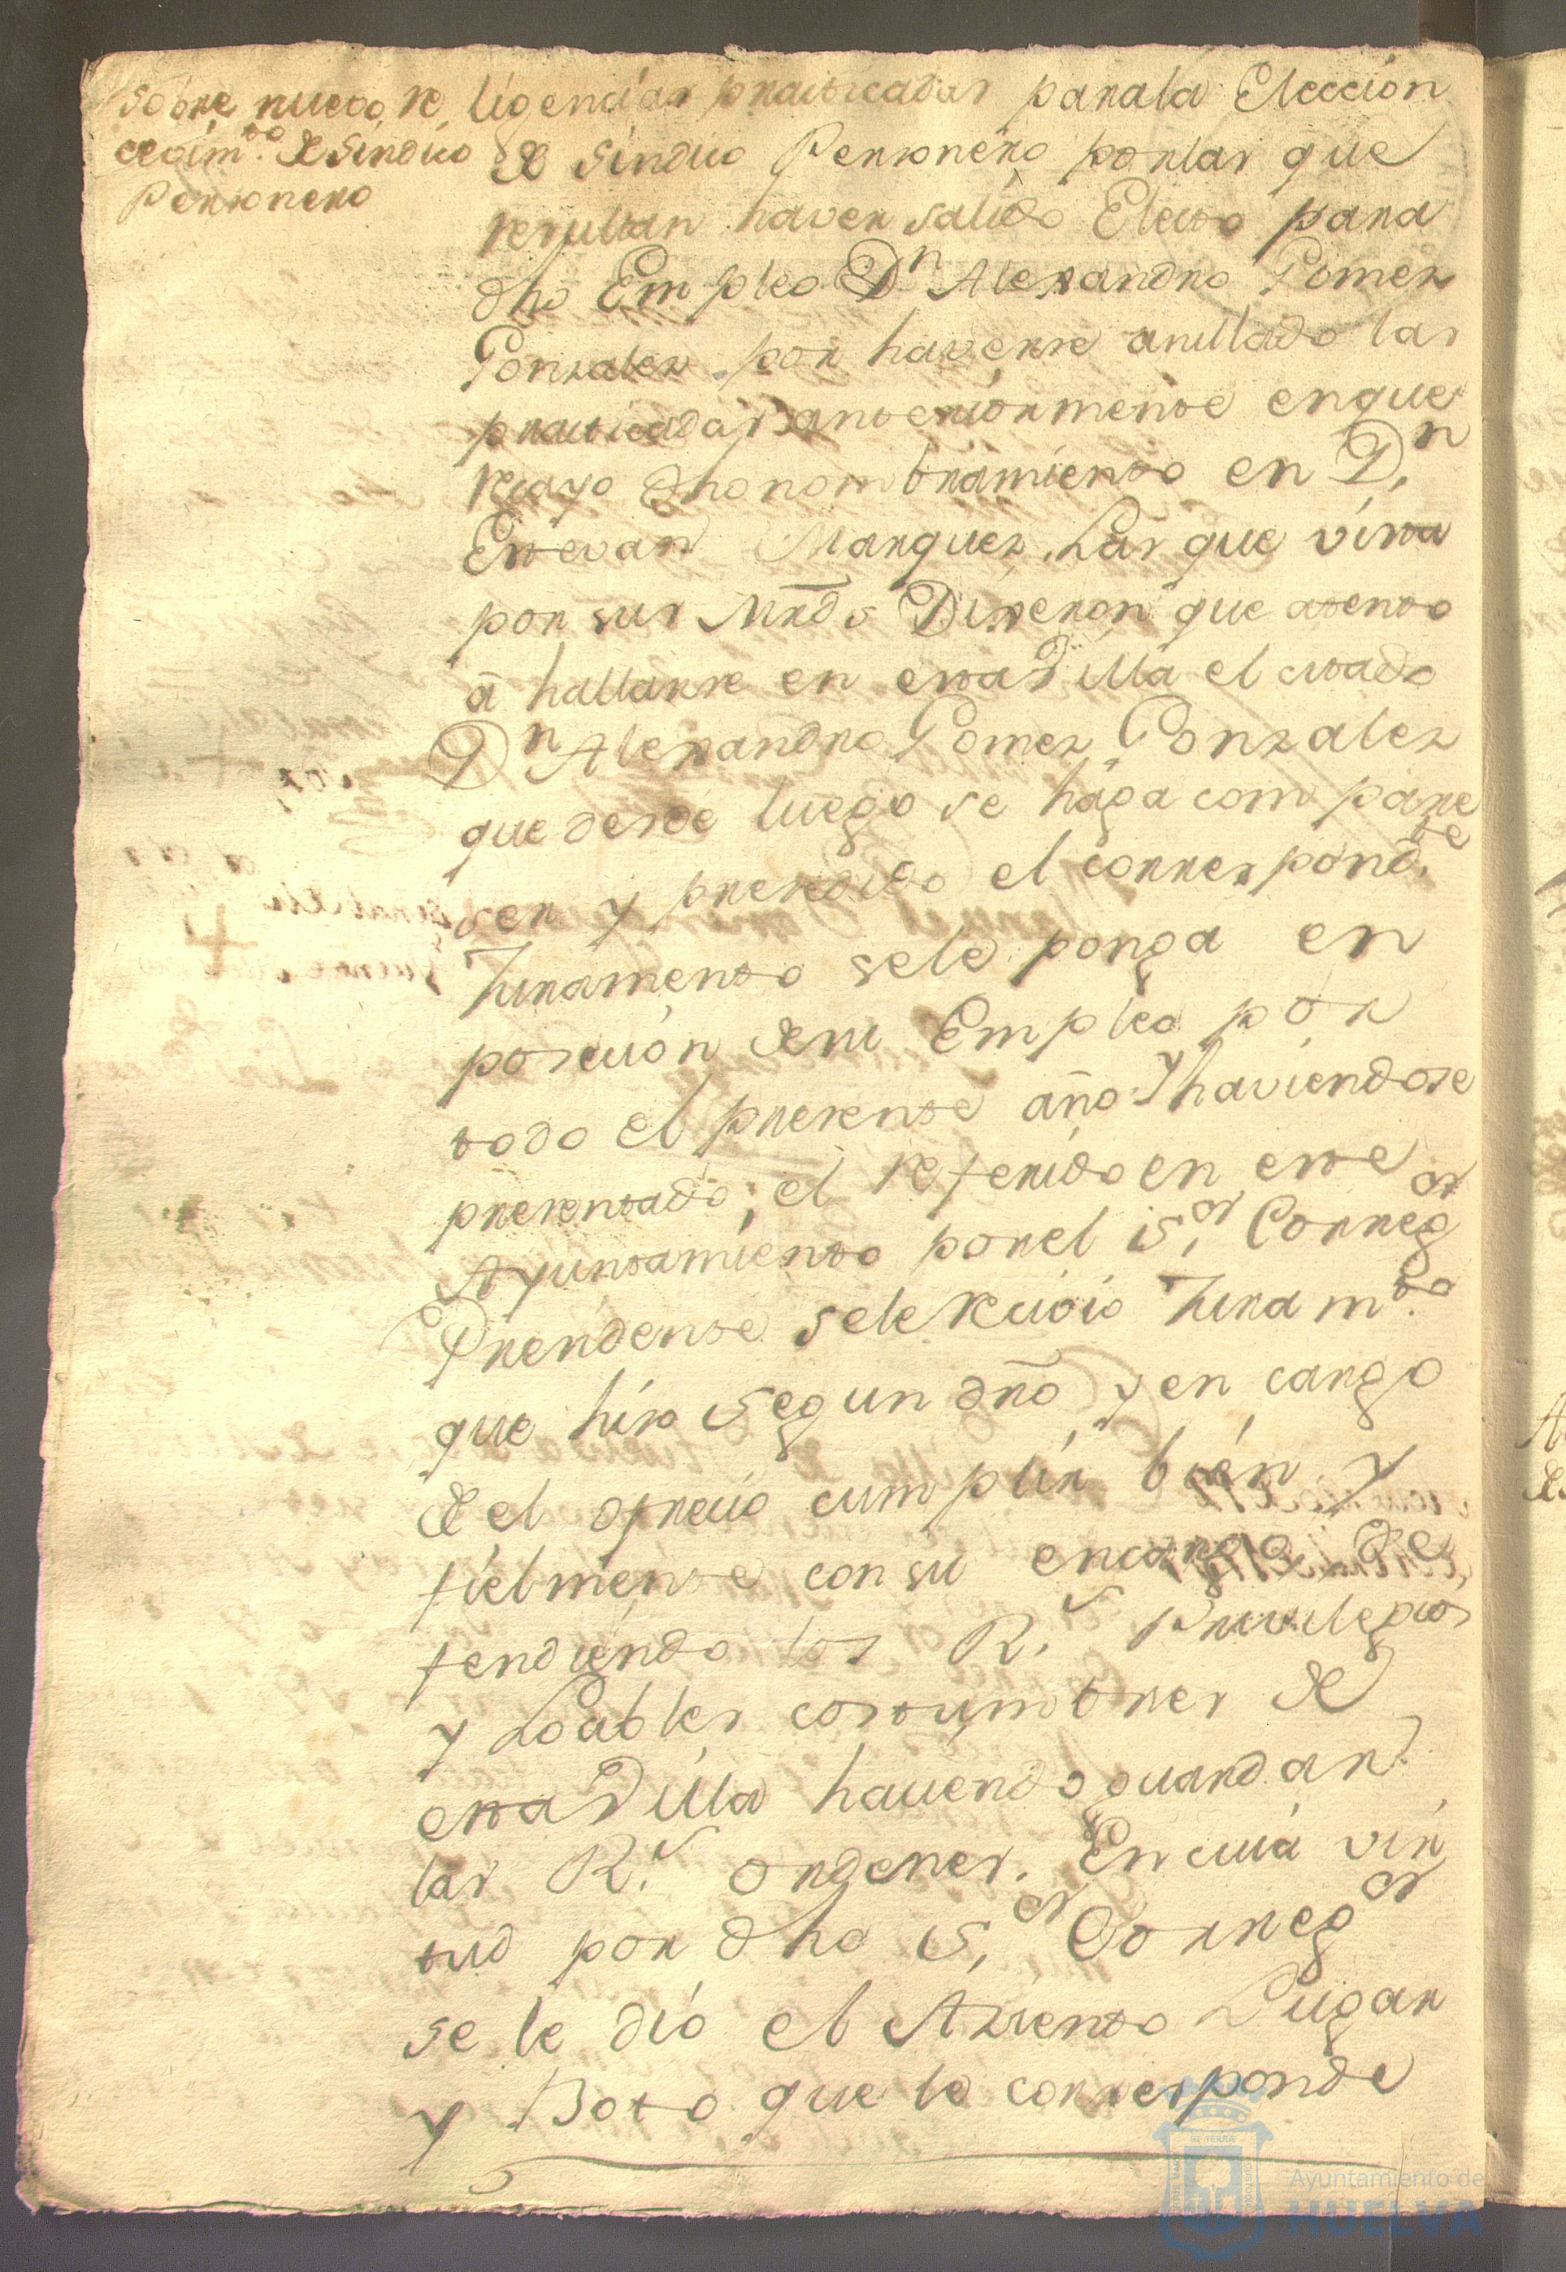 Sobre nuevo re
cevim.to de Sindico
Personero
ligencias practicadas para la Eleccion
de Sindico Personero por las que
resultan haver salido Electo para
dho Empleo Dn Alexandro Gomez
Gonzalez por haverse anullado las
practicadas anteriormente en que
recayo dho nombramiento en Dn
Estevan Marquez. Las que vista
por sus Mrds Dixeron que atento
â hallarse en esta Villa el citado
Dn Alexandro Gomez Gonzalez
que desde luego se haga compare
ser y presedido el correspond.te
Juramento se le ponga en
posecion de su Empleo por
todo el presente año y haviendose
presentado, el referido en este
Ayuntamiento por el S.or Correg.or
Precidente se le recivio Juram.to
que hizo segun dro y en cargo
de el ofrecio cumplir bien y
fielmente con su encargo de
fendiendo los R.s Privilegios
y Loables costumbres de
esta Villa haciendo guardar
las R.s ordenes. En cuia vir
tud por dho S.or Correg.or
se le dió el Aziento Lugar
y Boto que le corresponde
Ayuntamiento de
HUELVA